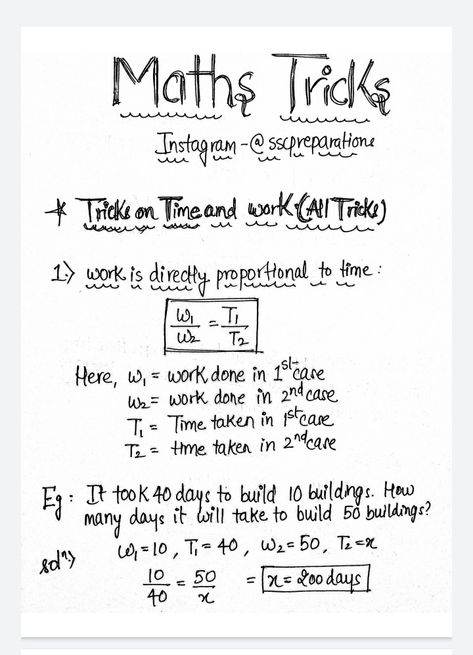 Maths Tricks
Instagram-@sscpreparations
* Tricks on Time and work:(All Tricks)
1.> work is directly proportional to time :
W₁/W₂ = T₁/T₂
Here, W₁ = work done in 1st case
W₂ = work done in 2nd case
T₁ = Time taken in 1st case
T₂ = time taken in 2nd case
Eg : It took 40 days to build 10 buildings. How
many days it will take to build 50 buildings?
solⁿ> W₁=10, T₁=40, W₂=50, T₂=x
10/40 = 50/x = x=200 days